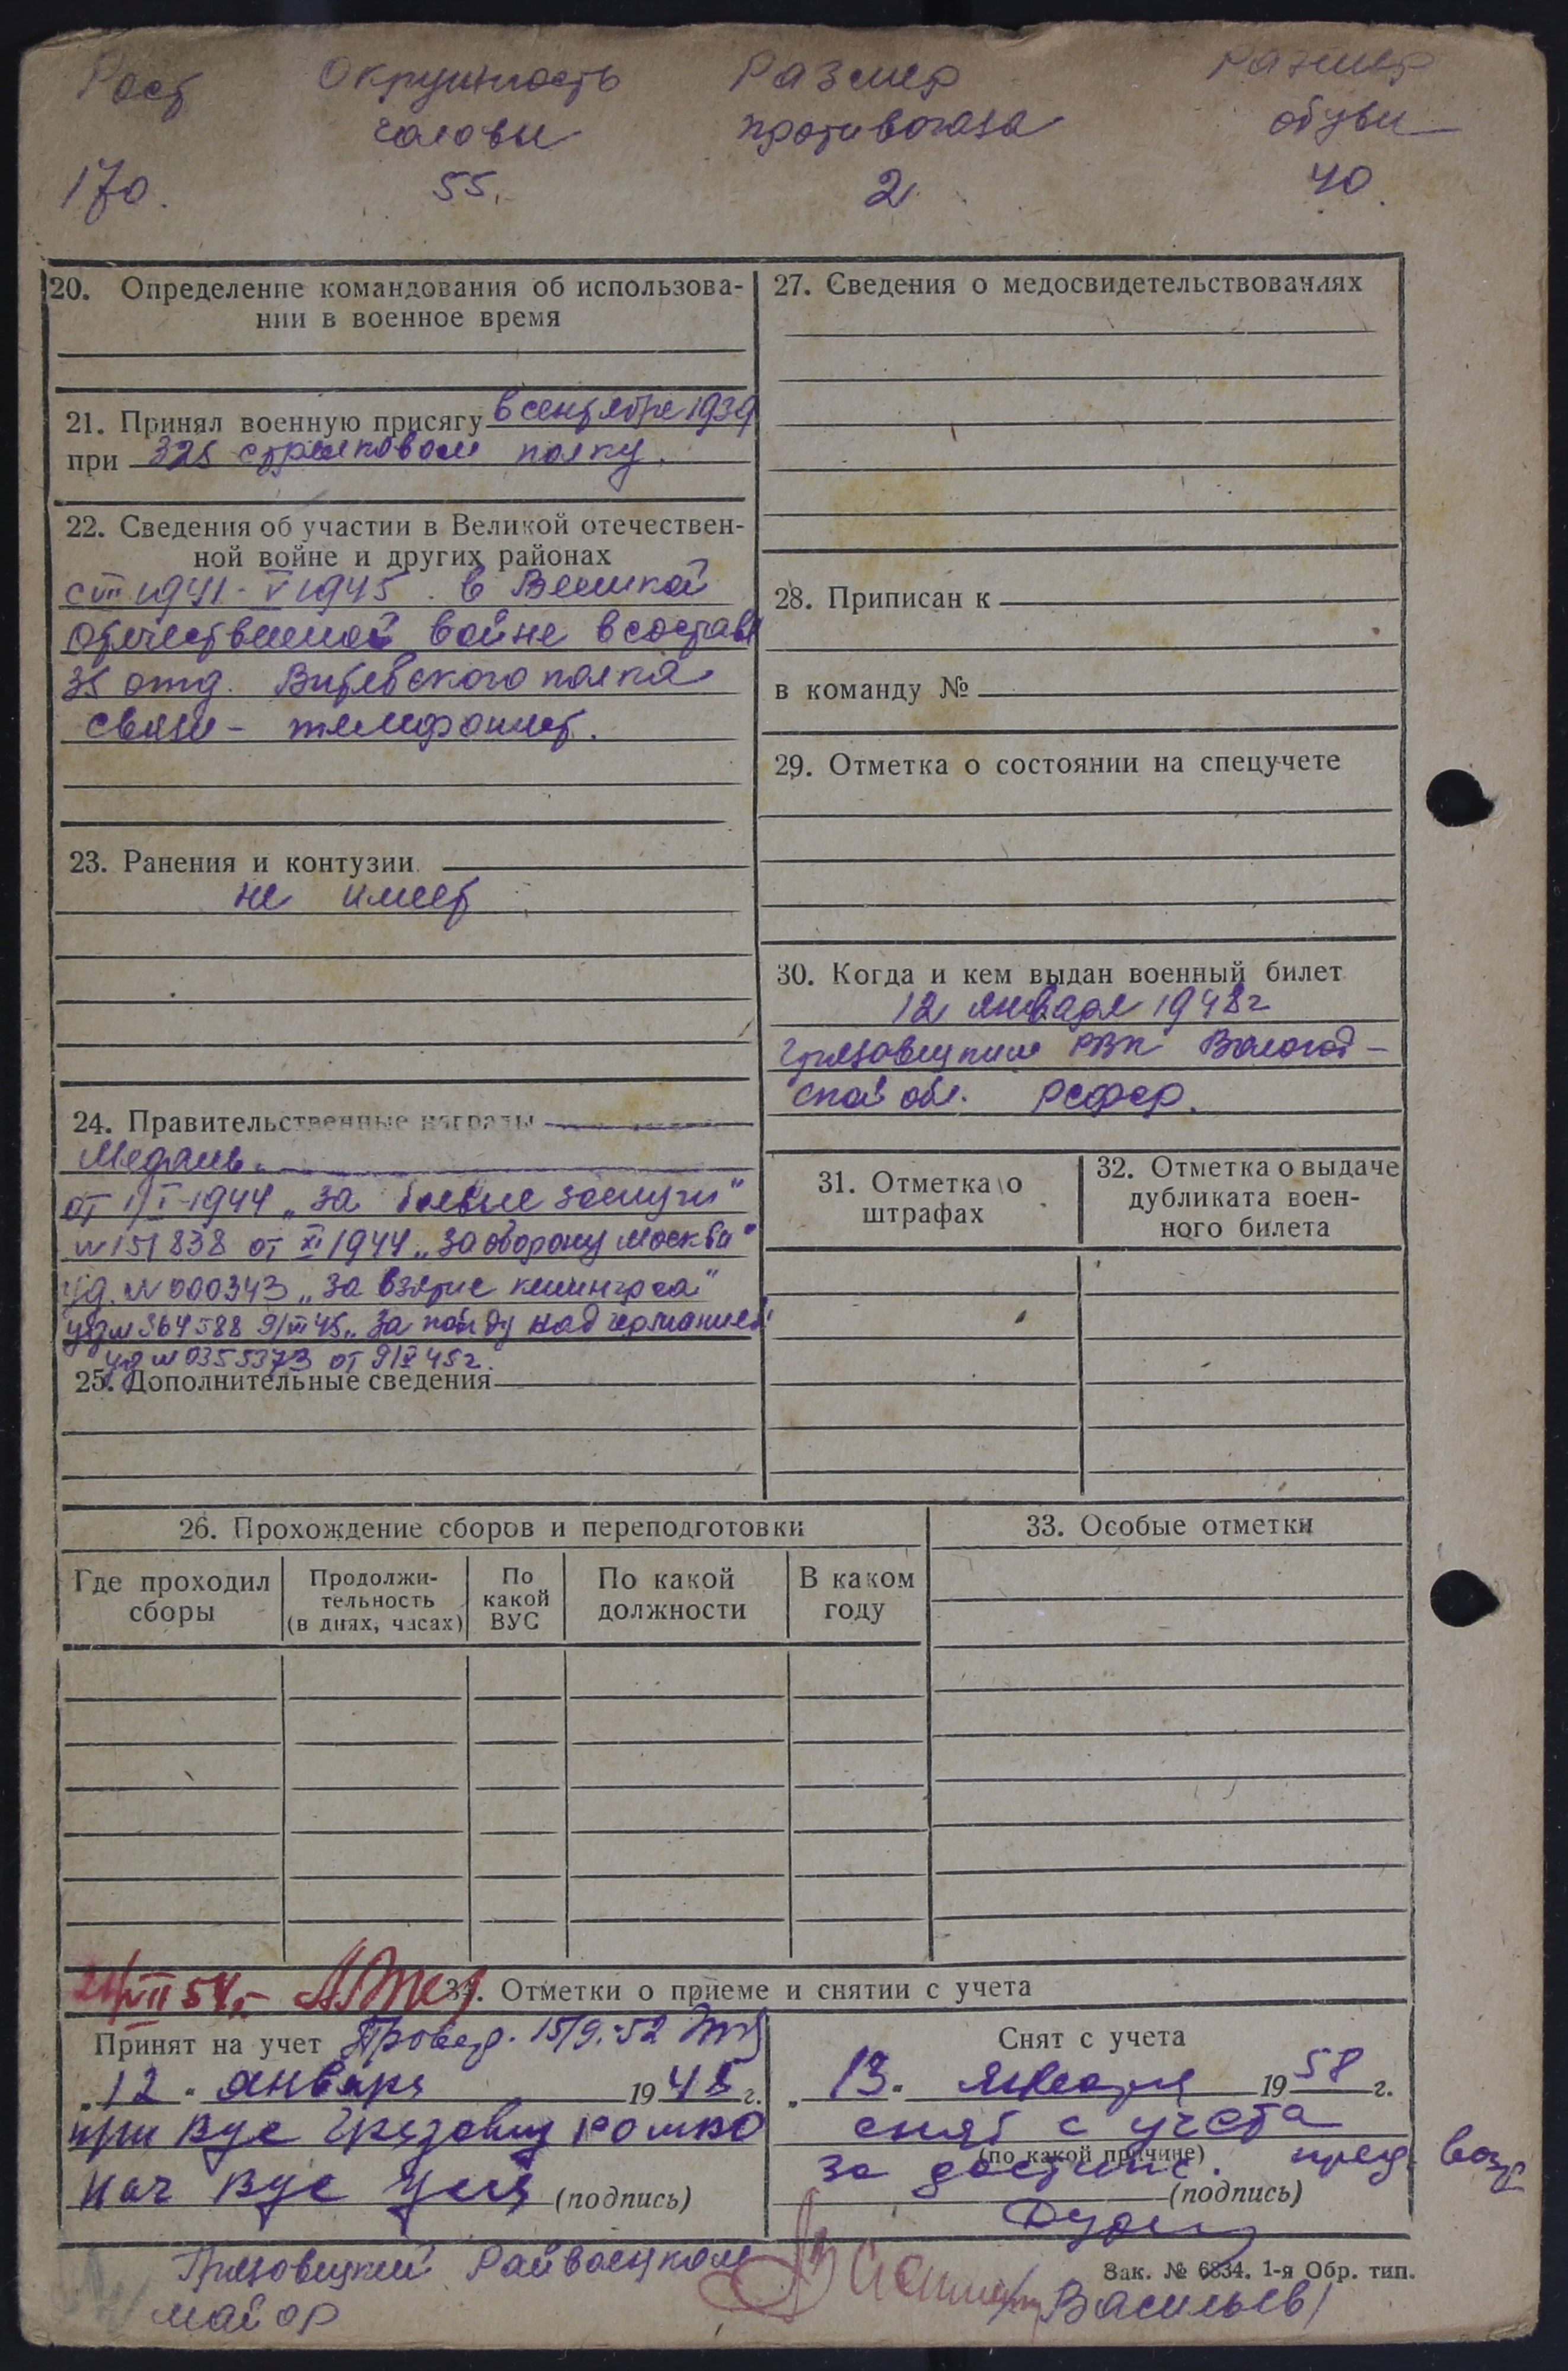 Рост Окружность Размер Размер
головы противогаза обуви
170. 55. 2 40.
20. Определение командования об использова-
нии в военное время
21. Принял военную присягу в сентябре 1939
при 325 стрелковом полку.
22. Сведения об участии в Великой отечествен-
ной войне и других районах
с VII 1941 - V 1945 в Великой
Отечественной войне в составе
35 отд. Витебского полка
связи - телефонист.
23. Ранения и контузии
не имеет
24. Правительственные награды
Медаль.
от 1/I-1944 „за боевые заслуги"
№ 151838 от XI 1944 „За оборону Москвы"
уд. № 000343 „За взятие кенингсга"
уд № 364588 9/III 45 „За победу над германией"
уд № 0355373 от 9/X 45 г.
25. Дополнительные сведения
27. Сведения о медосвидетельствованиях
28. Приписан к
в команду №
29. Отметка о состоянии на спецучете
30. Когда и кем выдан военный билет
12 января 1948 г
Грязовецким РВК Вологод-
ской обл. РСФСР.
31. Отметка о
штрафах
32. Отметка о выдаче
дубликата воен-
ного билета
26. Прохождение сборов и переподготовки
Где проходил
сборы
Продолжи-
тельность
(в днях, часах)
По
какой
ВУС
По какой
должности
В каком
году
33. Особые отметки
VII 54 г.
34. Отметки о приеме и снятии с учета
Принят на учет Провер. 15/9.-52
„12" январь 1948 г.
при Вус Грязовец
нач Вус (подпись)
Снят с учета
„13" января 1958 г.
снят с учета
(по какой причине)
за достиж. пред. возр
(подпись)
Грязовецкий Райвоенком
майор
/Васильев/
Зак. № 6834. 1-я Обр. тип.